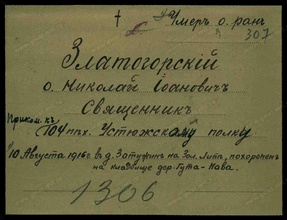 † Умеръ о. ранъ
307
Златогорскій
о. Николай Іоановичъ
Священникъ
Приком. къ
104 пѣх. Устюжскому полку
10 Августа 1916 г. в д. Затуринъ на Зол. Липѣ, похороненъ
на кладбище дер. Гута-Нова.
1306